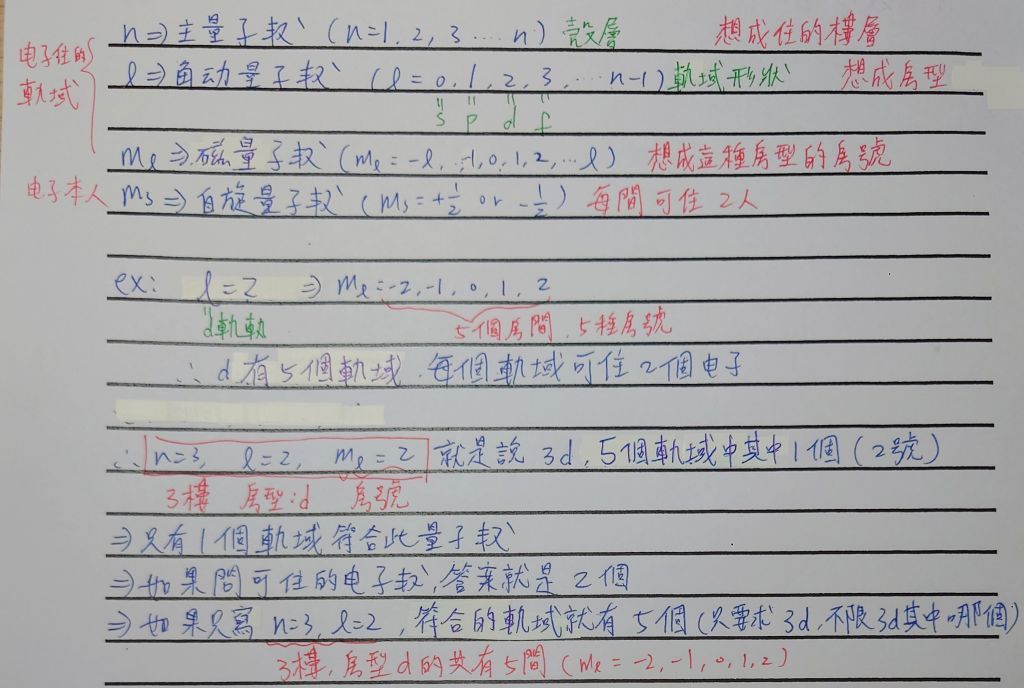 n⇒主量子数 (n=1, 2, 3 ‥‥ n) 殼層 想成住的樓層
电子住的軌域
l⇒角动量子数 (l = 0, 1, 2, 3, ‥‥ n-1) 軌域形狀 想成房型
s p d f
ml⇒磁量子数 (ml = -l, ‥-1, 0, 1, 2, ‥l) 想成這種房型的房號
电子本人 ms⇒自旋量子数 (ms = +1/2 or -1/2) 每間可住 2人
ex: l=2 ⇒ ml=-2, -1, 0, 1, 2
d軌軌 5個房間, 5種房號
∴ d 有 5個軌域, 每個軌域可住 2個电子
∴ n=3, l=2, ml=2 就是說 3d, 5個軌域中其中1個 (2號)
3樓 房型:d 房號
⇒只有1個軌域符合此量子数
⇒如果問可住的电子数, 答案就是 2個
⇒如果只寫 n=3, l=2, 符合的軌域就有 5個 (只要求3d, 不限3d其中哪個)
3樓, 房型d的共有5間 (ml = -2, -1, 0, 1, 2)